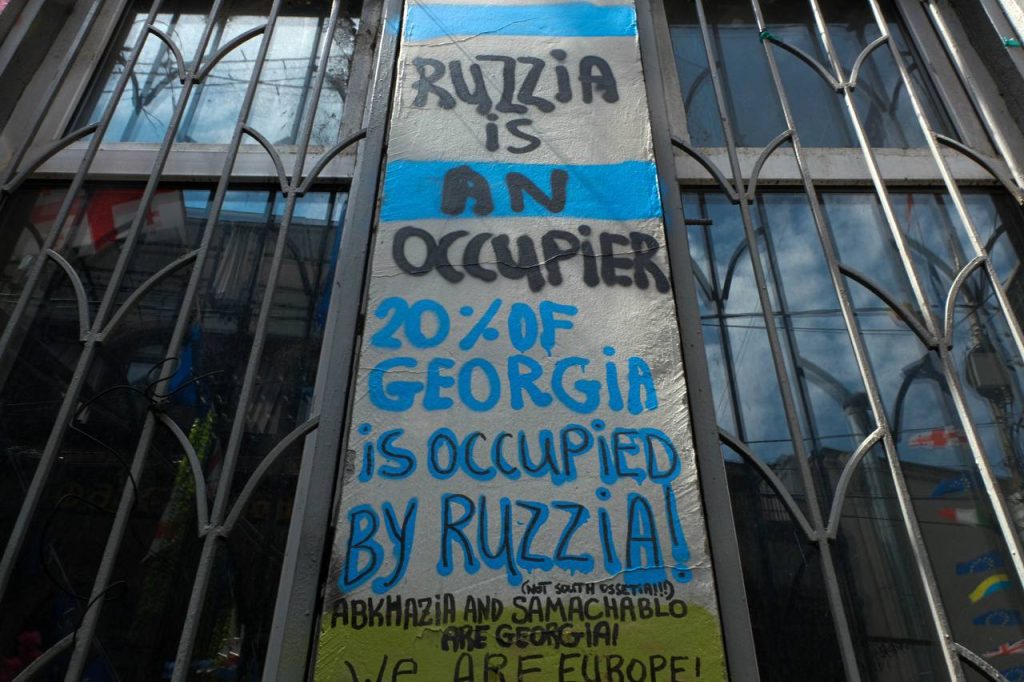 RUZZiA
iS
AN
OCCUPiER
20% OF
GEORGiA
iS OCCUPiED
BY RUZZiA!
(NOT SOUTH OSSETiA!!!)
ABKHAZiA AND SAMACHABLO
ARE GEORGiA!
We ARE EUROPE!